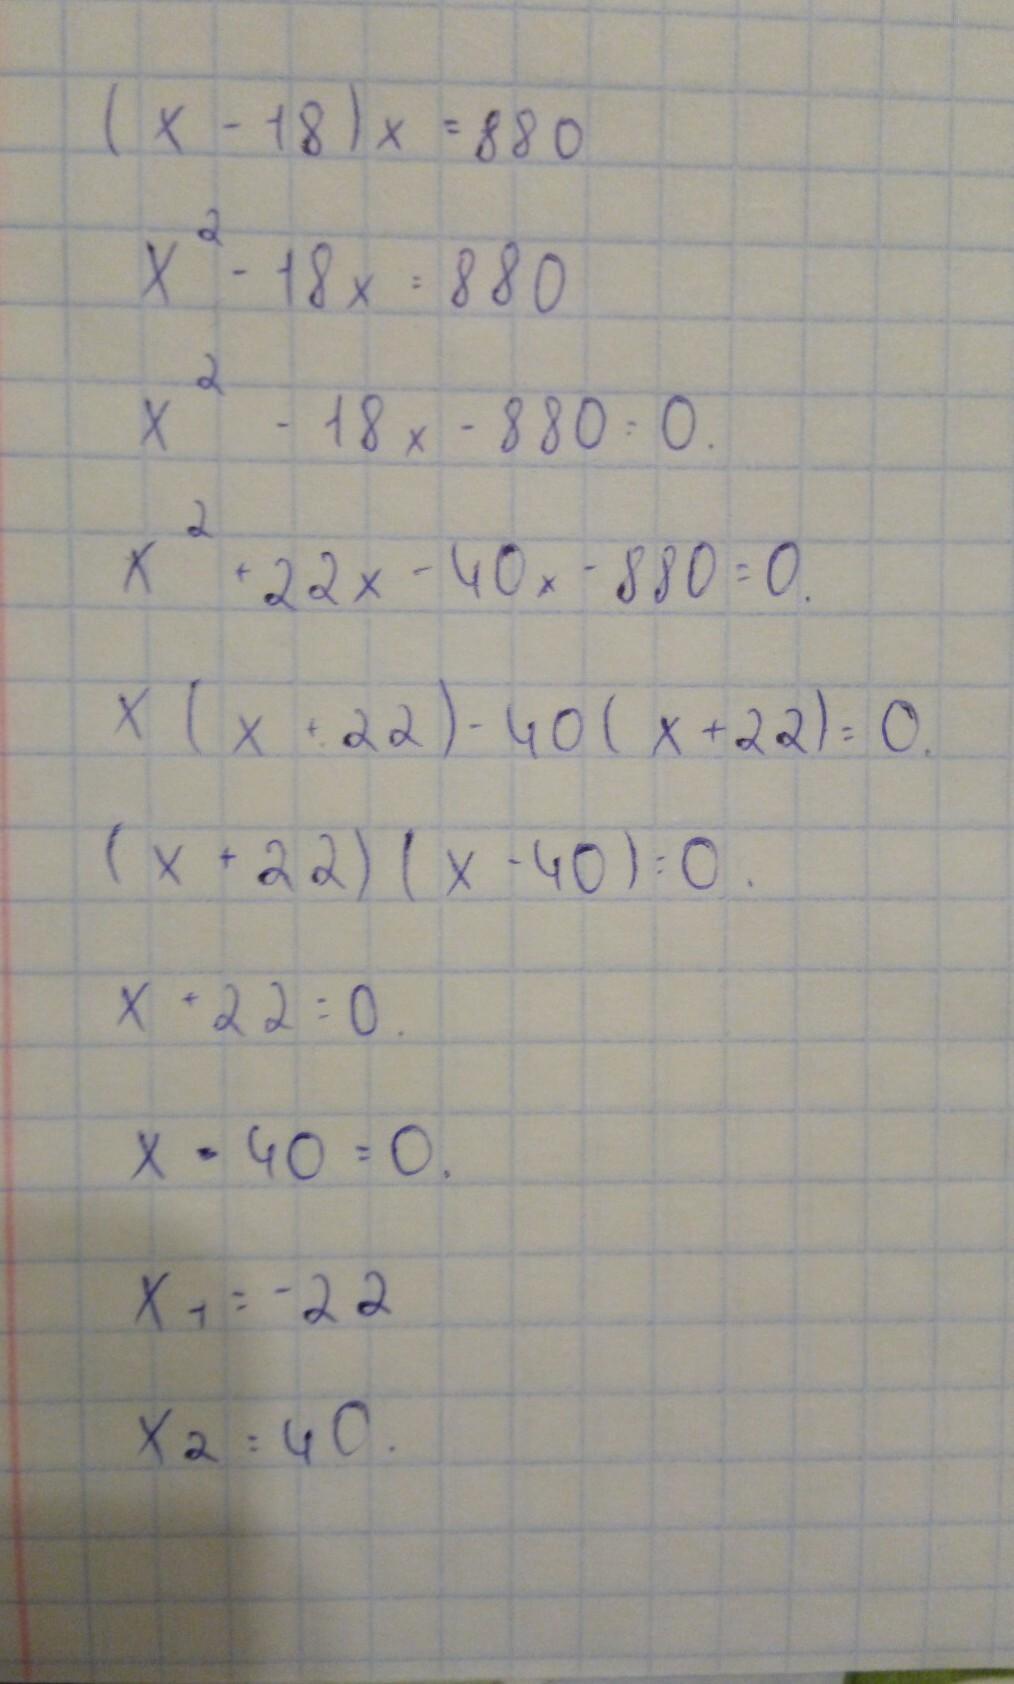 (x - 18)x = 880
x² - 18x = 880
x² - 18x - 880 = 0.
x² + 22x - 40x - 880 = 0.
x(x + 22) - 40(x + 22) = 0.
(x + 22)(x - 40) = 0.
x + 22 = 0.
x - 40 = 0.
x₁ = -22
x₂ = 40.